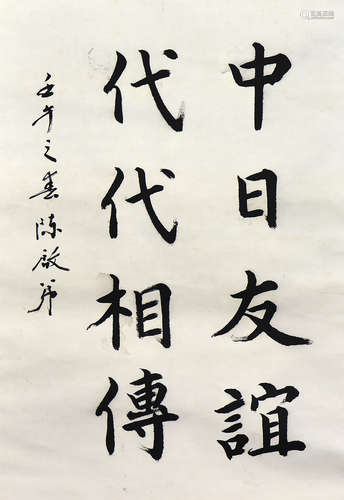 中日友誼
代代相傳
壬午之春 陳啟